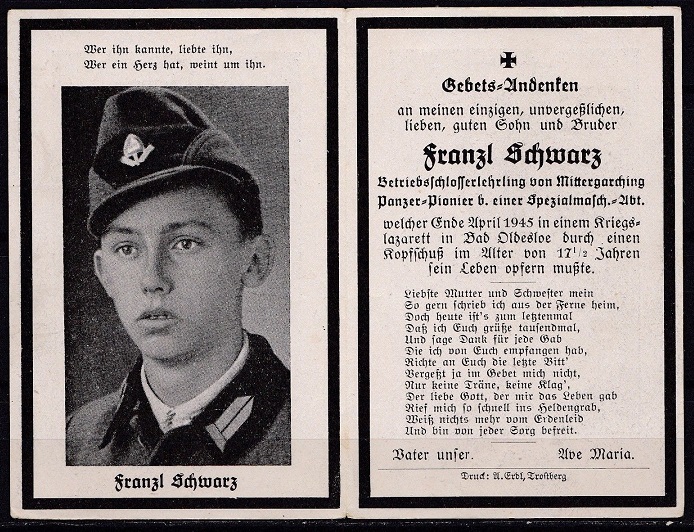 Wer ihn kannte, liebte ihn,
Wer ein Herz hat, weint um ihn.
Franzl Schwarz
Gebets-Andenken
an meinen einzigen, unvergeßlichen,
lieben, guten Sohn und Bruder
Franzl Schwarz
Betriebsschlosserlehrling von Mittergarching
Panzer-Pionier b. einer Spezialmasch.-Abt.
welcher Ende April 1945 in einem Kriegs-
lazarett in Bad Oldesloe durch einen
Kopfschuß im Alter von 17 1/2 Jahren
sein Leben opfern mußte.
Liebste Mutter und Schwester mein
So gern schrieb ich aus der Ferne heim,
Doch heute ist's zum letztenmal
Daß ich Euch grüße tausendmal,
Und sage Dank für jede Gab
Die ich von Euch empfangen hab,
Richte an Euch die letzte Bitt'
Vergeßt ja im Gebet mich nicht,
Nur keine Träne, keine Klag',
Der liebe Gott, der mir das Leben gab
Rief mich so schnell ins Heldengrab,
Weiß nichts mehr vom Erdenleid
Und bin von jeder Sorg befreit.
Vater unser. Ave Maria.
Druck: A. Erdl, Trostberg